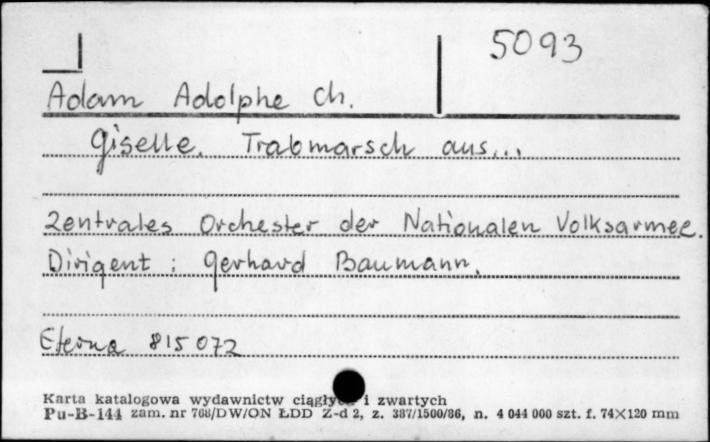 5093
Adam Adolphe Ch.
Giselle. Trabmarsch aus...
Zentrales Orchester der Nationalen Volksarmee.
Dirigent : Gerhard Baumann.
Eterna 815 072
Karta katalogowa wydawnictw i zwartych
Pu-B-144 zam. nr 768/DW/ON ŁDD Z-d 2, z. 387/1500/86, n. 4 044 000 szt. f. 74×120 mm